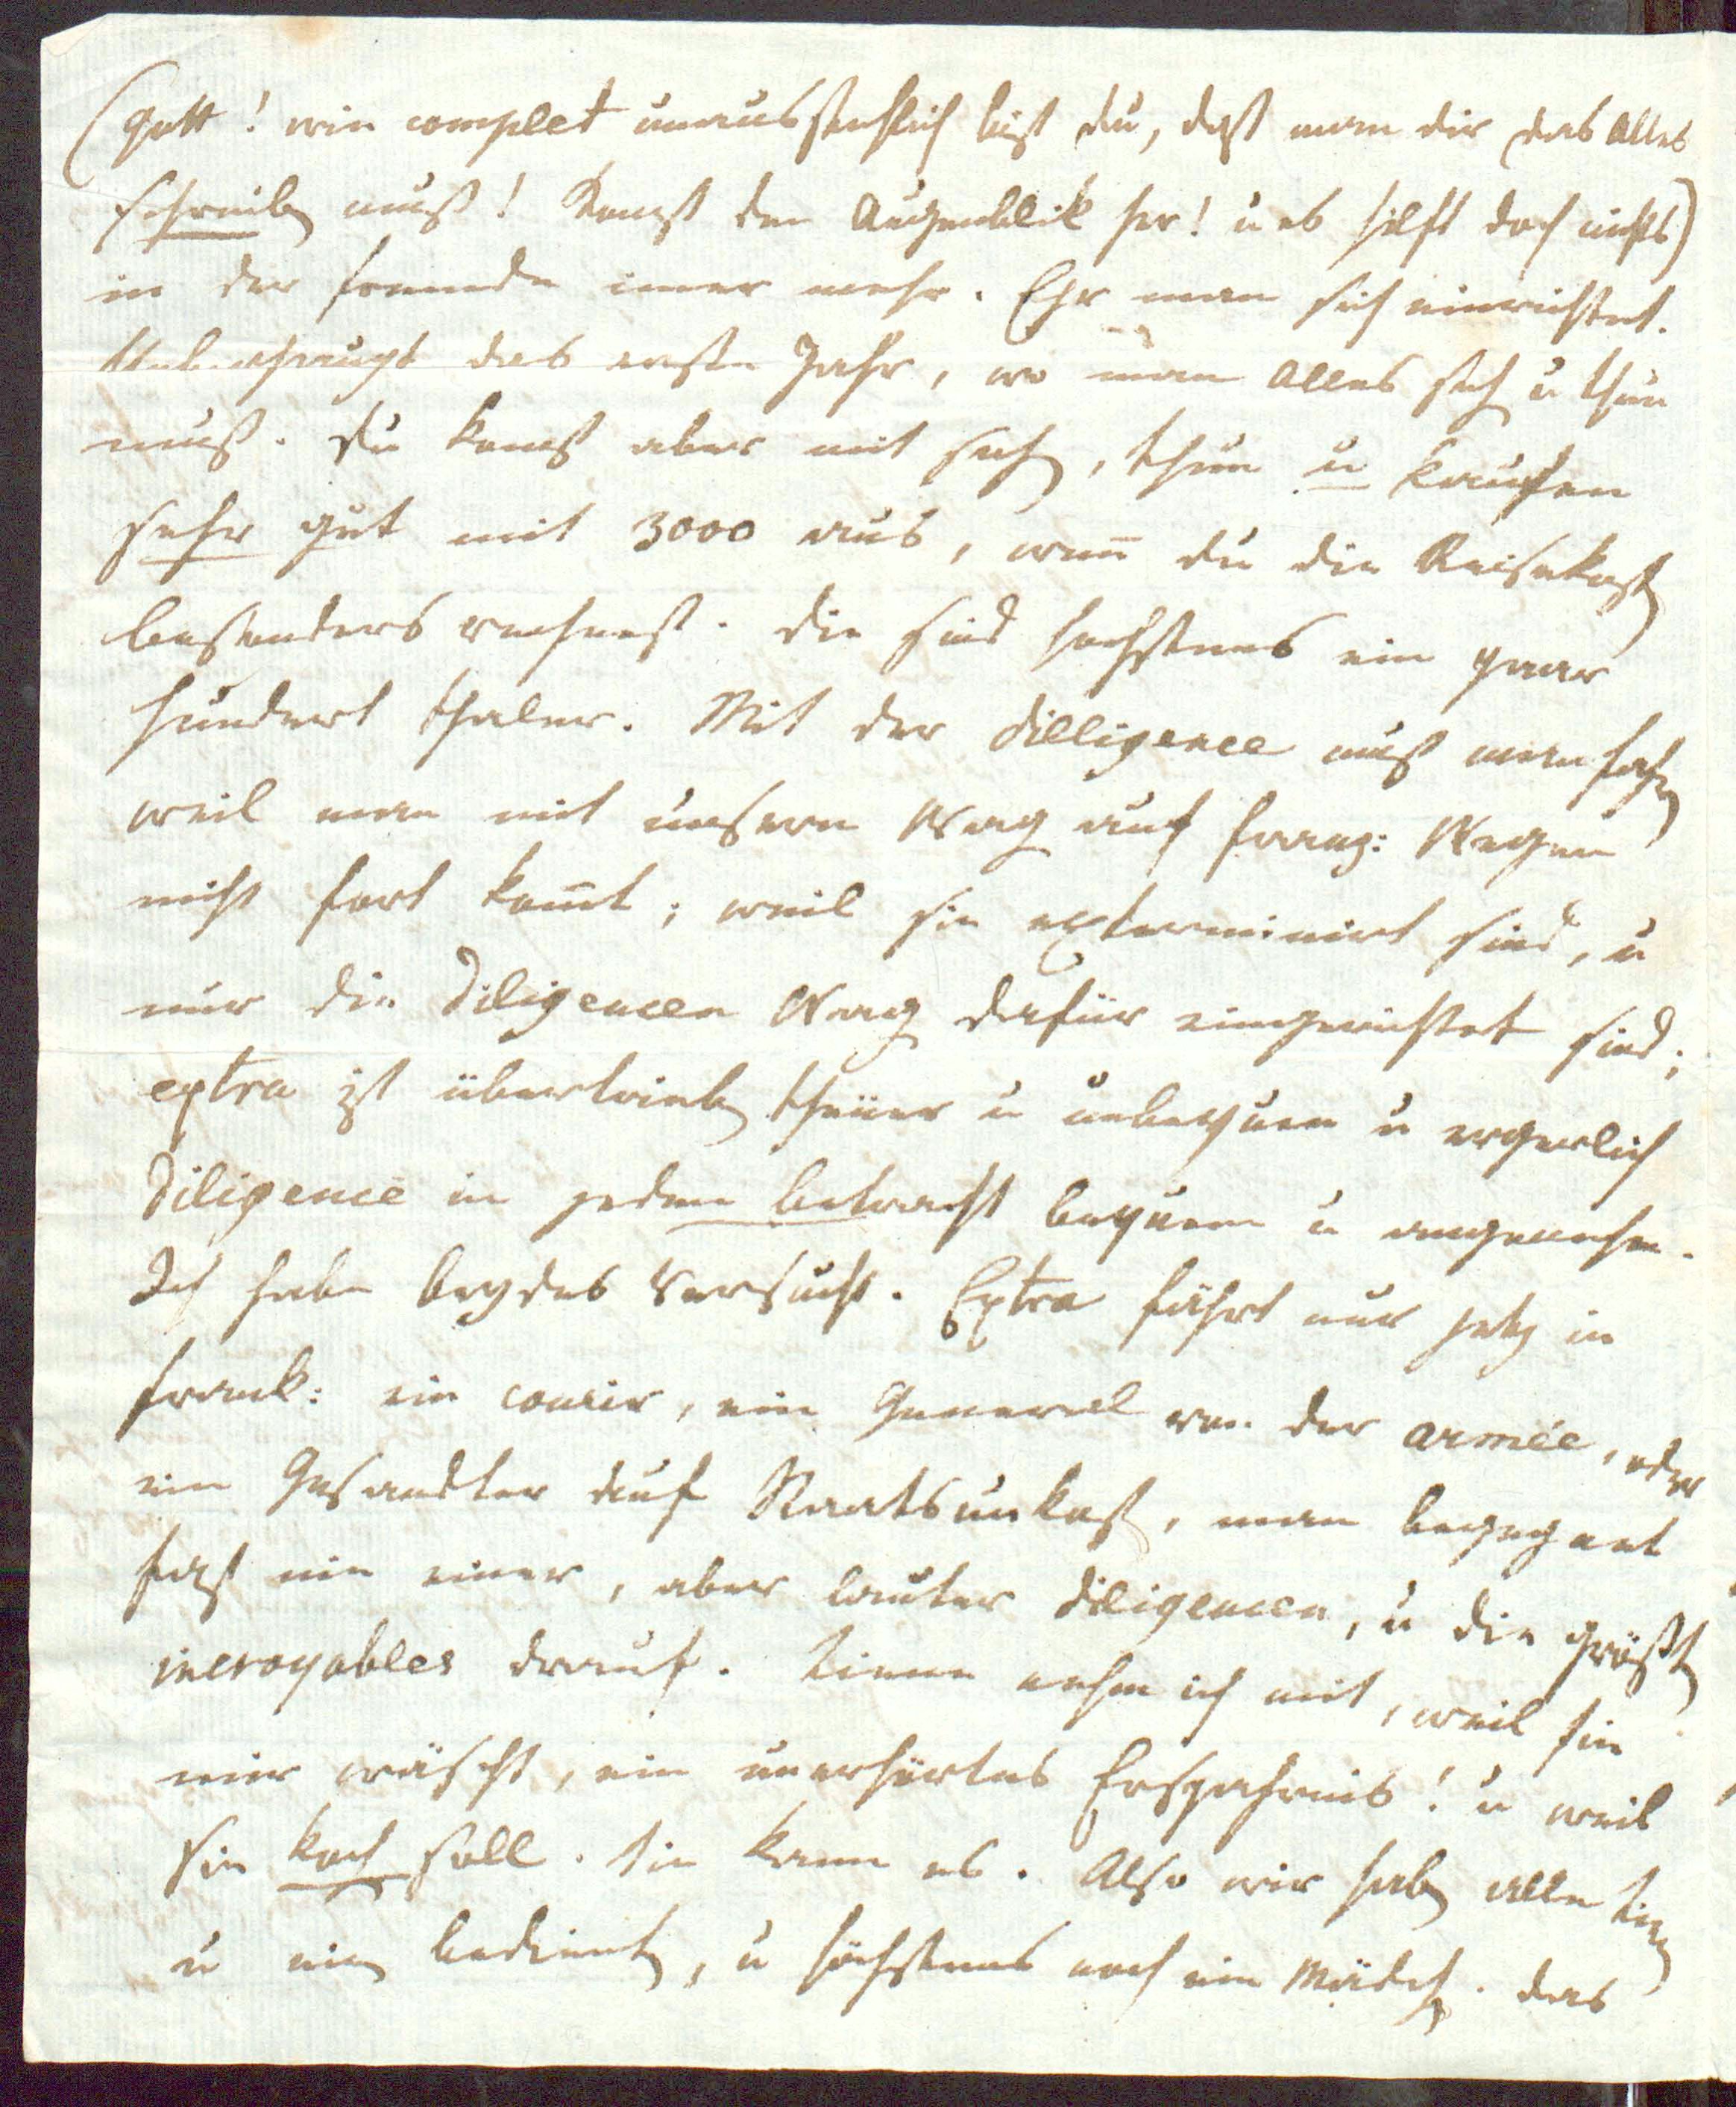 (Gott! wie complet unausstehlich bist du, daß man dir das alles
schreiben muß! Komst den Augenblik her! u es hilft doch nichts)
in der fremde imer mehr. Ehe man sich einrichtet.
Ueberhaupt das erste Jahr, wo man alles sehen u thun
muß. Du komst aber mit sehen, thun u kaufen
sehr gut mit 3000 aus, wen̄ du die Reisekosten
besonders rechnest. die sind hochstens ein paar
hundert thaler. Mit der dilligence muß man fahren
weil man mit unsern Wagen auf franz: Wegen
nicht fort kom̄t; weil sie exterminirt sind, u
nur die Diligencen Wagen dafür eingerichtet sind;
extra ist übertrieben theuer u unbequem u ergerlich
Diligence in jedem betracht bequem u angenehm.
Ich habe beydes versucht. Extra fährt nur jetz in
frank: ein courir, ein General von der armée, oder
ein Gesandter auf Staatsunkosten, man begegnet
fast nie einer, aber lauter diligencen, u die größten
incroyables drauf. Linen nehm ich mit, weil sie
mir wäscht, ein unerhörtes Ersparniß! u weil
sie kochen soll. Sie kann es. Also wir haben alle Linen
u ein bedienten, u höchstens noch ein Mädchen. das